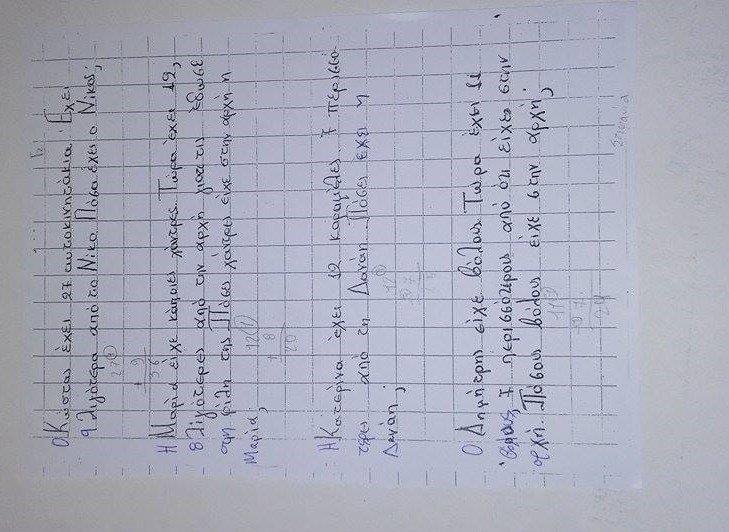 Ο Κώστας έχει 27 αυτοκινητάκια. Έχει
9 λιγότερα από το Νίκο. Πόσα έχει ο Νίκος;
+ 9
36
Η Μαρία είχε κάποιες χάντρες. Τώρα έχει 12,
8 λιγότερες από την αρχή γιατί τις έδωσε
στη φίλη της. Πόσες χάντρες είχε στην αρχή η
Μαρία;
+ 8
20
Η Κατερίνα έχει 12 καραμέλες 7 περισσό
τερες από τη Δανάη. Πόσες έχει η
Δανάη;
Ο Δημήτρης είχε βόλους. Τώρα έχει 11
βόλους 7 περισσότερους από ότι είχε στην
αρχή. Πόσους βόλους είχε στην αρχή;